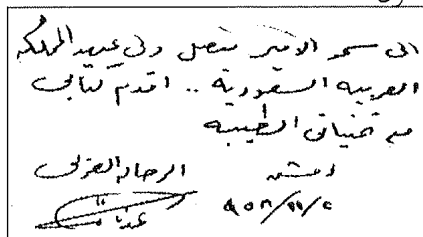 الى سمو الامير فيصل ولي عهد المملكة
العربية السعودية .. اقدم كتابي
مع تمنياتي الطيبة
دمشق الرحالة
عدنان